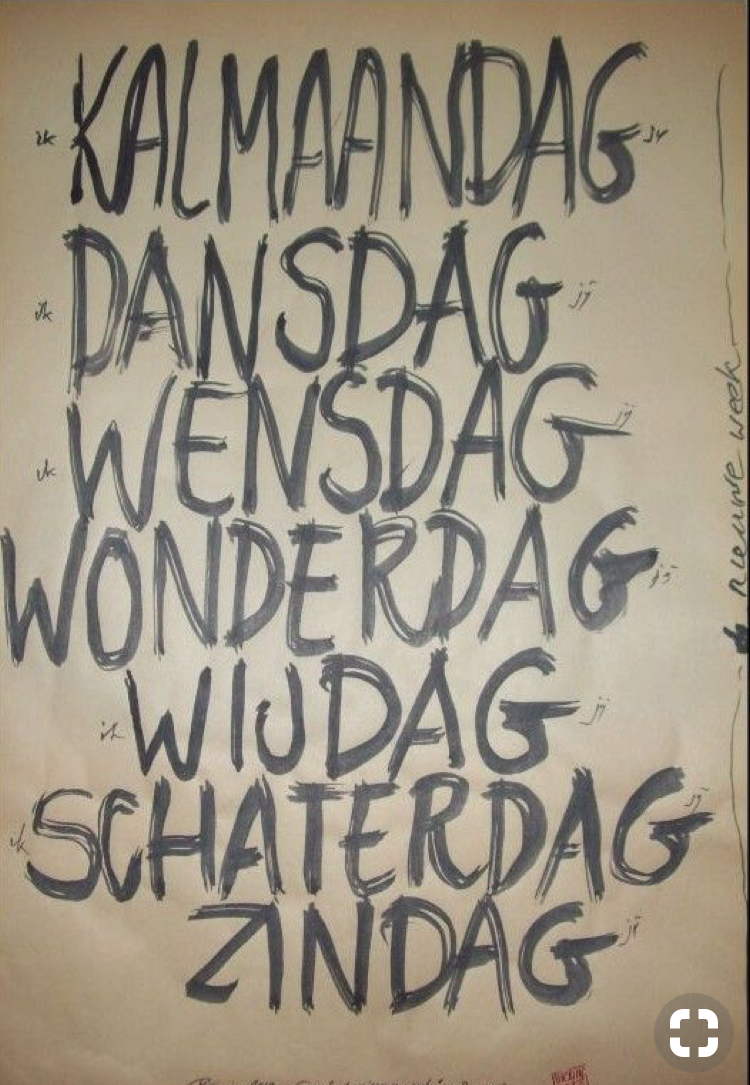 ik KALMAANDAG jy
ik DANSDAG jÿ
ik WENSDAG jÿ
WONDERDAG jÿ
ik WIJDAG jÿ
ik SCHATERDAG jÿ
ZINDAG jÿ
de nieuwe week